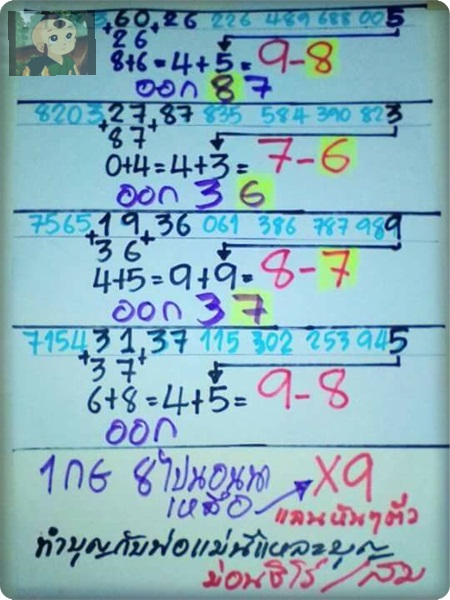 3 + 60 + 26 226 489 688 005
26
8+6 = 4+5 = 9-8
ออก 87
8203 + 27 + 87 835 584 390 823
87
0+4 = 4+3 = 7-6
ออก 36
7565 + 19 + 36 061 386 787 989
36
4+5 = 9+9 = 8-7
ออก 37
7154 + 31 + 37 115 302 253 945
37
6+8 = 4+5 = 9-8
ออก
8 ไปนอนนา X9
เหลือ
ทำบุญกับพ่อแม่นี่แหละบุญ
ม่อนชิโร่